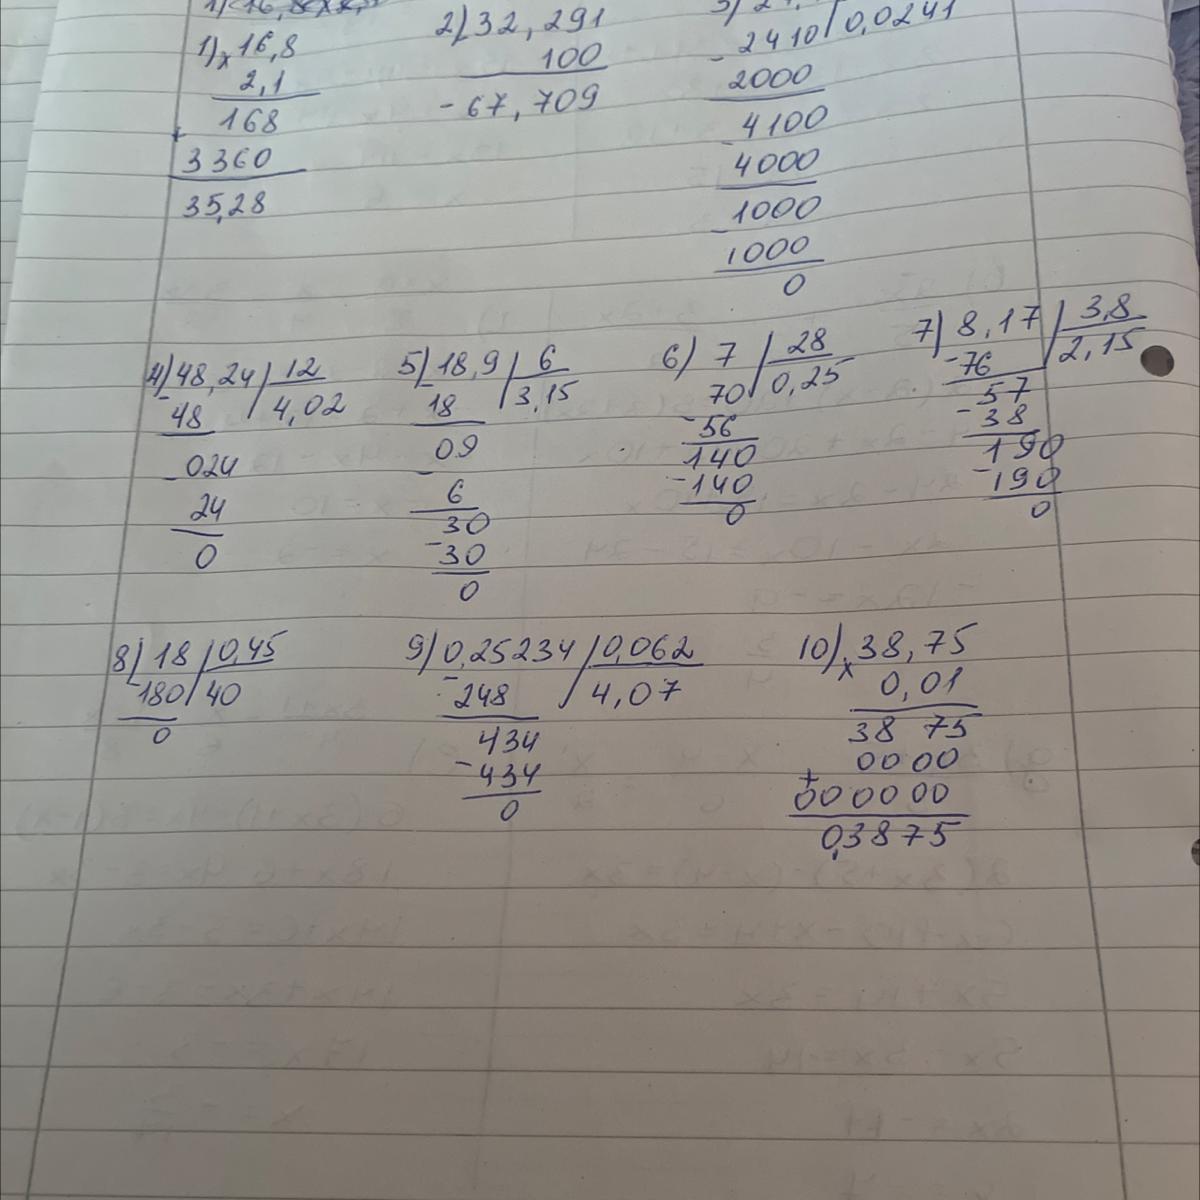 1) 16,8
1) x 16,8
2,1
168
+
3360
35,28
2) 32,291
100
-67,709
3) 2
- 2410 | 0,0241
2000
- 4100
4000
- 1000
1000
0
4) 48,24 | 12
- 48 | 4,02
- 024
24
0
5) 18,9 | 6
- 18 | 3,15
09
-
6
30
- 30
0
6) 7 | 28
70 | 0,25
- 56
140
- 140
0
7) 8,17 | 3,8
- 76 | 2,15
57
- 38
190
- 190
0
8) 18 | 0,45
- 180 | 40
0
9) 0,25234 | 0,062
- 248 | 4,07
434
- 434
0
10) x 38,75
0,01
38 75
0000
+
000000
0,3875